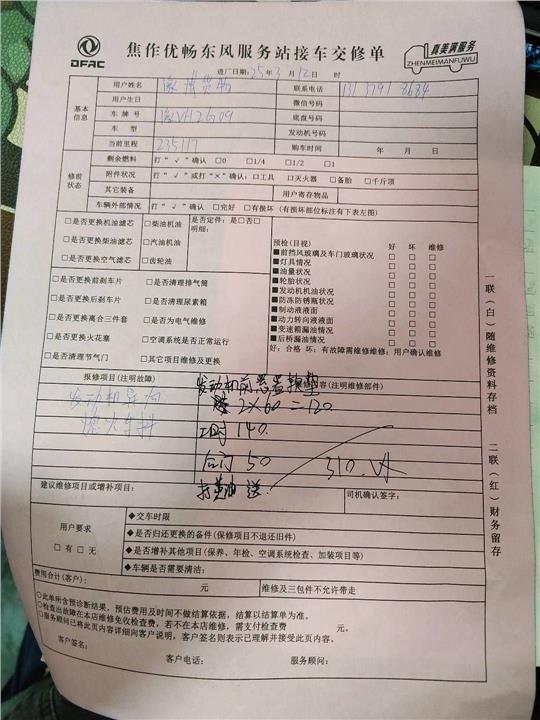 DFAC
焦作优畅东风服务站接车交修单
真美满服务
ZHENMEIMANFUWU
进厂日期:25年3月12日 时
基本信息
用户姓名
联系电话
用户生日
微信号码
车牌号 VH2G09
底盘号码
车型
发动机号码
当前里程 235117
购车时间 年 月 日
修前状态
剩余燃料 打“√”确认 □0 □1/4 □1/2 □1
附件状况 打“√”或打“×”确认:□工具 □灭火器 □备胎 □千斤顶
其它装备
用户寄存物品
车辆外部情况 打“√”确认 □完好 □有损坏(有损坏部位标注有下表左图)
□是否更换机油滤芯 □柴油机油
□是否更换柴油滤芯 □汽油机油
□是否更换空气滤芯 □齿轮油
是否定件:是□否□
明细:
□是否更换前刹车片 □是否清理排气筒
□是否更换后刹车片 □是否清理尿素箱
□是否更换离合三件套 □是否为电气维修
□是否更换火花塞 □空调系统是否正常运行
□是否清理节气门 □其它项目维修及更换
预检(目视) 好 坏 维修
■前挡风玻璃及车门玻璃状况 □ □ □
■灯具情况 □ □ □
■油量状况 □ □ □
■轮胎状况 □ □ □
■发动机机油状况 □ □ □
■防冻防锈瓶状况 □ □ □
■制动液液面 □ □ □
■动力转向液液面 □ □ □
■变速箱漏油情况 □ □ □
■后桥漏油情况 □ □ □
好:合格 坏:有故障需维修维修:用户确认维修
报修项目(注明故障)
容(注明维修部件)
发动机异响
熄火车抖
发动机前悬置软垫
2×60=120
工时 140.
后门 50
310.
打黄油 送.
建议维修项目或增补项目:
司机确认签字:
用户要求
□有□无
◆交车时限
◆是否归还更换的备件(保修项目不退还旧件)
◆是否增补其他项目(保养、年检、空调系统检查、加装项目等)
◆车辆是否需要清洁:
费用合计(客户): 元
维修及三包件不允许带走
○此单所含预诊断结果,预估费用及时间不做结算依据,结算以结算单为准。
○检查出故障在本店维修免收检查费,若不在本店维修,需支付检查费 元。
○服务顾问已将此页内容详细向客户说明,客户签名则表示已理解并接受此页内容。
客户签名:
客户电话: 服务顾问:
一联(白)随维修资料存档
二联(红)财务留存